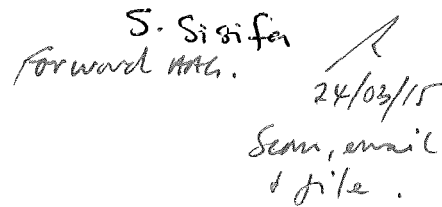 S. Sisifa
Forward AAG.
24/03/15
Scan, email
& file.